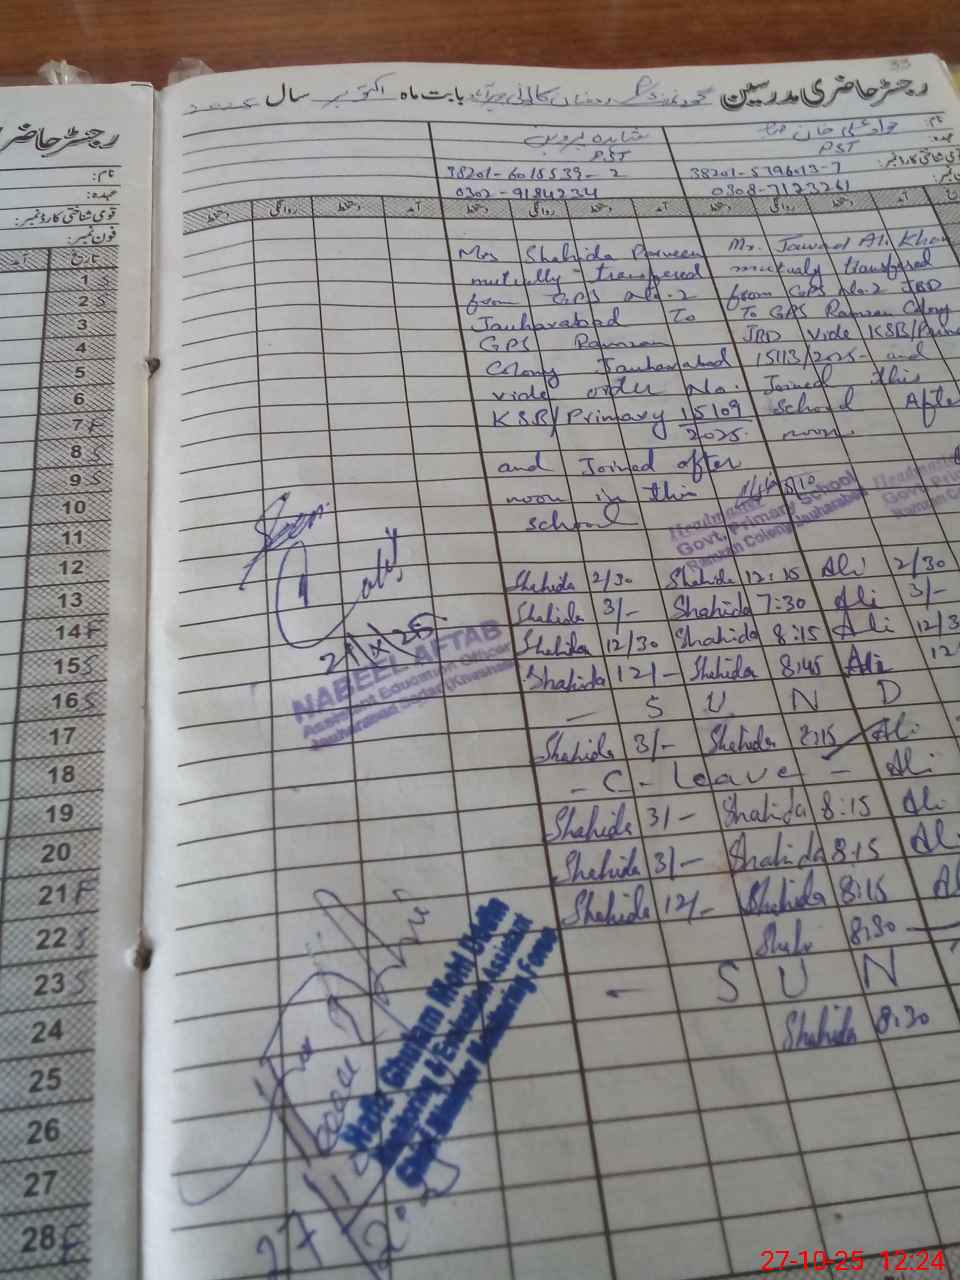 33
رجسٹر حاضری مدرسین گورنمنٹ رمضان کالونی بابت ماہ اکتوبر سال
رجسٹر حاضر
نام:
عہدہ:
قومی شناختی کارڈ نمبر:
فون نمبر:
شاہدہ پروین
PST
38201-6015539-2
0302-9184234
جواد علی خان
PST
38201-5796013-7
0308-7123261
دستخط روانگی دستخط آمد دستخط روانگی دستخط آمد دستخط روانگی دستخط آمد
تاریخ
Mrs Shahida Parveen
mutually transfered
from GPS No.2
Jauharabad To
GPS Ramzan
Colony Jauharabad
vide order No.
KSB/Primary 15109
2025.
and Joined after
noon in this
school
Mr. Jawad Ali Khan
mutualy transfered
from GPS No.2 JBD
To GPS Ramzan Colony
JBD vide KSB/
15113/2025 and
Joined this
school After
noon.
Headmaster
Govt. Primary School
Ramzan Colony Jauharabad
Shahida 2/30 Shahida 12:15 Ali 2/30
Shahida 3/- Shahida 7:30 Ali 3/-
Shahida 12/30 Shahida 8:15 Ali
Shahida 12/- Shahida 8:45 Ali
- S U N D
Shahida 3/- Shahida 8:15 Ali
- C - Leave - Ali
Shahida 3/- Shahida 8:15 Ali
Shahida 3/- Shahida 8:15 Ali
Shahida 12/- Shahida 8:15
8:30
- S U N
Shahida 8:30
NABEEL AFTAB
Assistant Education Officer
Jauharabad
Hafiz Ghulam Mohi Ud Din
Monitoring & Evaluation Assistant
Chief Minister Monitoring Force
1 S
2 S
3
4
5
6
7 F
8 S
9 S
10
11
12
13
14 F
15 S
16 S
17
18
19
20
21 F
22 S
23 S
24
25
26
27
28 F
27-10-25 12:24